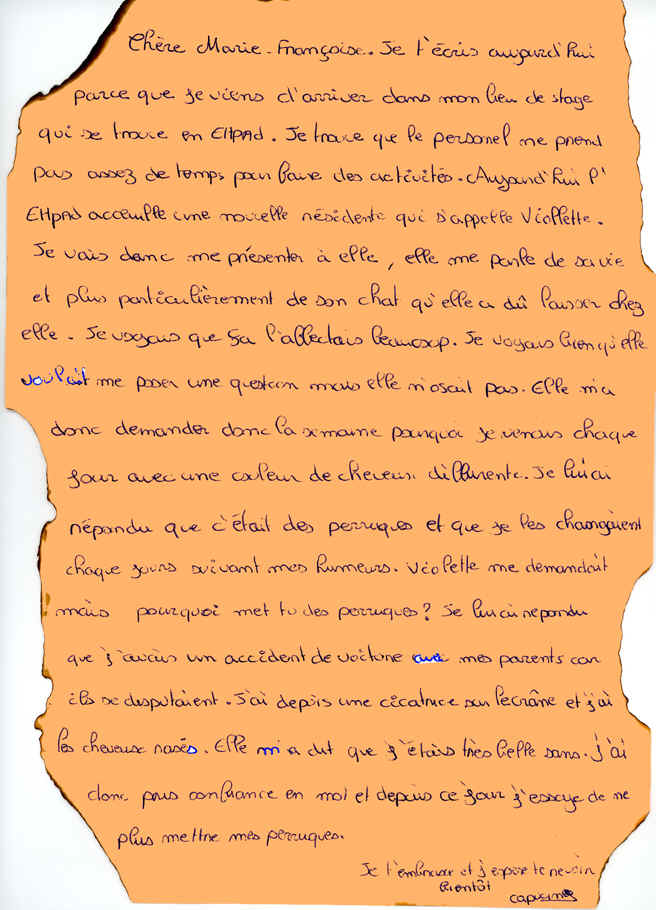 Chère Marie-Françoise. Je t'écris aujourd'hui
parce que je viens d'arriver dans mon lieu de stage
qui se trouve en EHPAD. Je trouve que le personel ne prend
pas assez de temps pour faire des activités. Aujourd'hui l'
EHPAD acceuille une nouvelle résidente qui s'appelle Viollette.
Je vais donc me présenter à elle, elle me parle de sa vie
et plus particulièrement de son chat qu'elle a dû laisser chez
elle. Je voyais que ça l'affectais beaucoup. Je voyais bien qu'elle
voulait me poser une question mais elle n'osait pas. Elle m'a
donc demander donc la semaine pourquoi je venais chaque
jour avec une couleur de cheveux différente. Je lui ai
répondu que c'était des perruques et que je les changaient
chaque jours suivant mes humeurs. Violette me demandait
mais pourquoi met tu des perruques? Je lui ai repondu
que j'avais un accident de voiture avec mes parents car
ils se disputaient. J'ai depuis une cicatrice sur le crâne et j'ai
les cheveux rasés. Elle m'a dit que j'étais très belle sans. J'ai
donc pris confiance en moi et depuis ce jour j'essaye de ne
plus mettre mes perruques.
Je t'embrasse et j'espère te revoir
bientôt
capucine